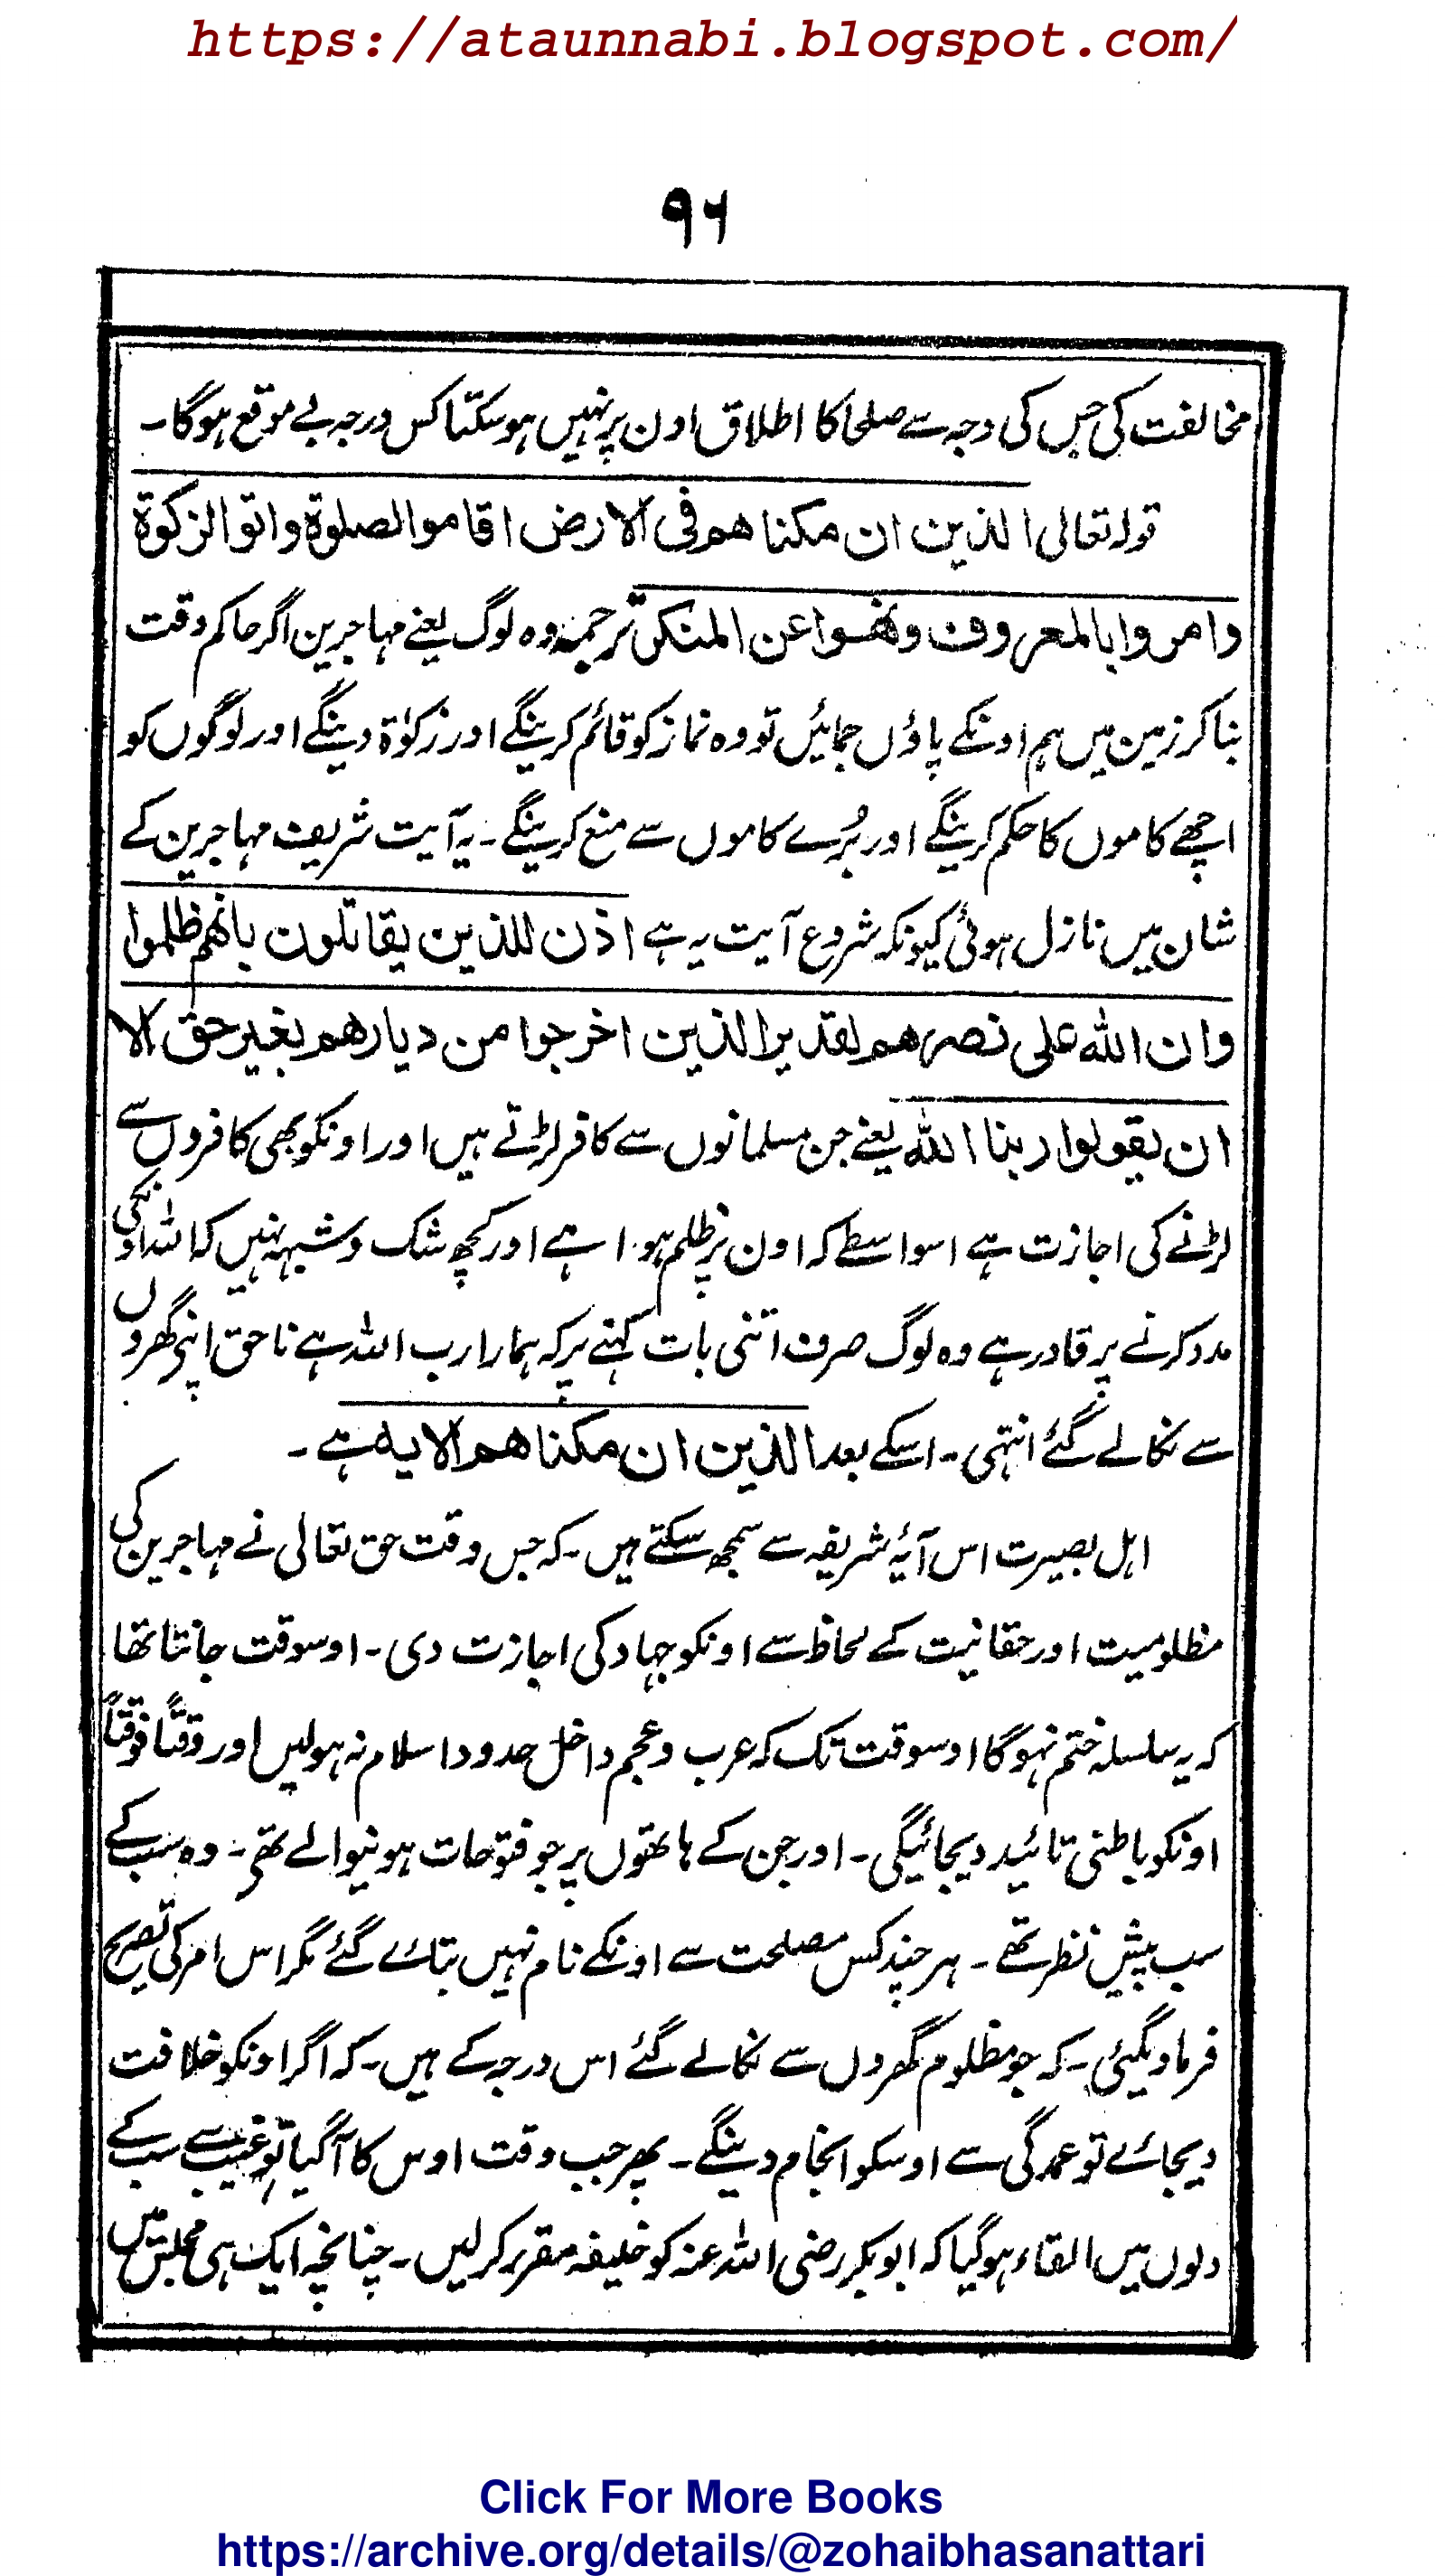 https://ataunnabi.blogspot.com/
۹۶
مخالفت کی جس کی وجہ سے صلحا کا اطلاق اون پر نہیں ہوسکتا کس درجہ بے موقع ہوگا۔
قولہ تعالی الذین ان مکنا هم فی الارض اقاموا الصلوۃ واتوا الزکوۃ
وامروا بالمعروف ونھوا عن المنکر ترجمہ وہ لوگ یعنے مہاجرین اگر حاکم وقت
بنا کر زمین میں ہم اونکے پاؤں جمائیں تو وہ نماز کو قائم کرینگے اور زکوٰۃ دینگے اور لوگوں کو
اچھے کاموں کا حکم کرینگے اور بُرے کاموں سے منع کرینگے۔ یہ آیت شریف مہاجرین کے
شان میں نازل ہوئی کیونکہ شروع آیت یہ ہے اذن للذین یقاتلون بانھم ظلموا
وان اللہ علی نصرھم لقدیر الذین اخرجوا من دیارھم بغیر حق الا
ان یقولوا ربنا اللہ یعنے جن مسلمانوں سے کافر لڑتے ہیں اور اونکو بھی کافروں سے
لڑنے کی اجازت ہے اسواسطے کہ اون پر ظلم ہوا ہے اور کچھ شک و شبہہ نہیں کہ اللہ اونکی
مدد کرنے پر قادر ہے وہ لوگ صرف اتنی بات کہنے پر کہ ہمارا رب اللہ ہے ناحق اپنی گھروں
سے نکالے گئے انتہی۔ اسکے بعد الذین ان مکنا ھم الایہ ہے۔
اہل بصیرت اس آیۂ شریفہ سے سمجھ سکتے ہیں۔ کہ جس وقت حق تعالی نے مہاجرین کی
مظلومیت اور حقانیت کے لحاظ سے اونکو جہاد کی اجازت دی۔ اوسوقت جانتا تھا
کہ یہ سلسلہ ختم نہوگا اوسوقت تک کہ عرب و عجم داخل حدود اسلام نہ ہولیں اور وقتاً فوقتاً
اونکو باطنی تائید دیجائیگی۔ اور جن کے ہاتھوں پر جو فتوحات ہونیوالے تھی۔ وہ سب کے
سب پیش نظر تھے۔ ہر چند کس مصلحت سے اونکے نام نہیں بتاے گئے مگر اس امر کی تصریح
فرما دیگئی۔ کہ جو مظلوم گھروں سے نکالے گئے اس درجہ کے ہیں۔ کہ اگر اونکو خلافت
دیجاے تو عمدگی سے اوسکو انجام دینگے۔ پھر جب وقت اوس کا آگیا تو غیب سے سب کے
دلوں میں القاء ہوگیا کہ ابو بکر رضی اللہ عنہ کو خلیفہ مقرر کرلیں۔ چنانچہ ایک ہی مجلس میں
Click For More Books
https://archive.org/details/@zohaibhasanattari